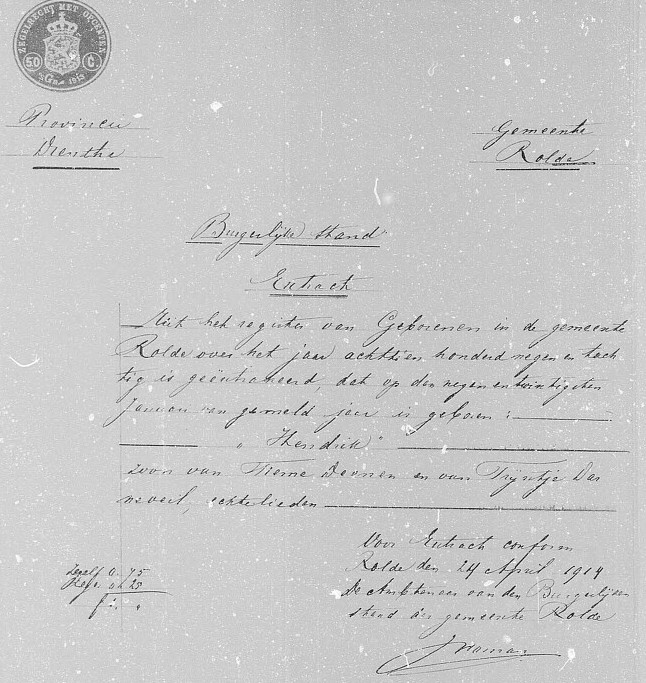 ZEGELRECHT MET OPCENTEN
50 C.
Provincie
Drenthe
Gemeente
Rolde
Burgerlijke Stand
Extract
Uit het register van Geborenen in de gemeente
Rolde over het jaar achttien honderd negen en tach
tig is geëxtraheerd, dat op den negen en twintigsten
Januari van gemeld jaar is geboren:
"Hendrik"
zoon van Deenen en van Trijntje Dar
neveil, echtelieden
Voor Extract conform
Rolde den 24 April 1914
De Ambtenaar van den Burgerlijken
stand der gemeente Rolde
Zegel f 0.75
Lege 0.25
f 1. "